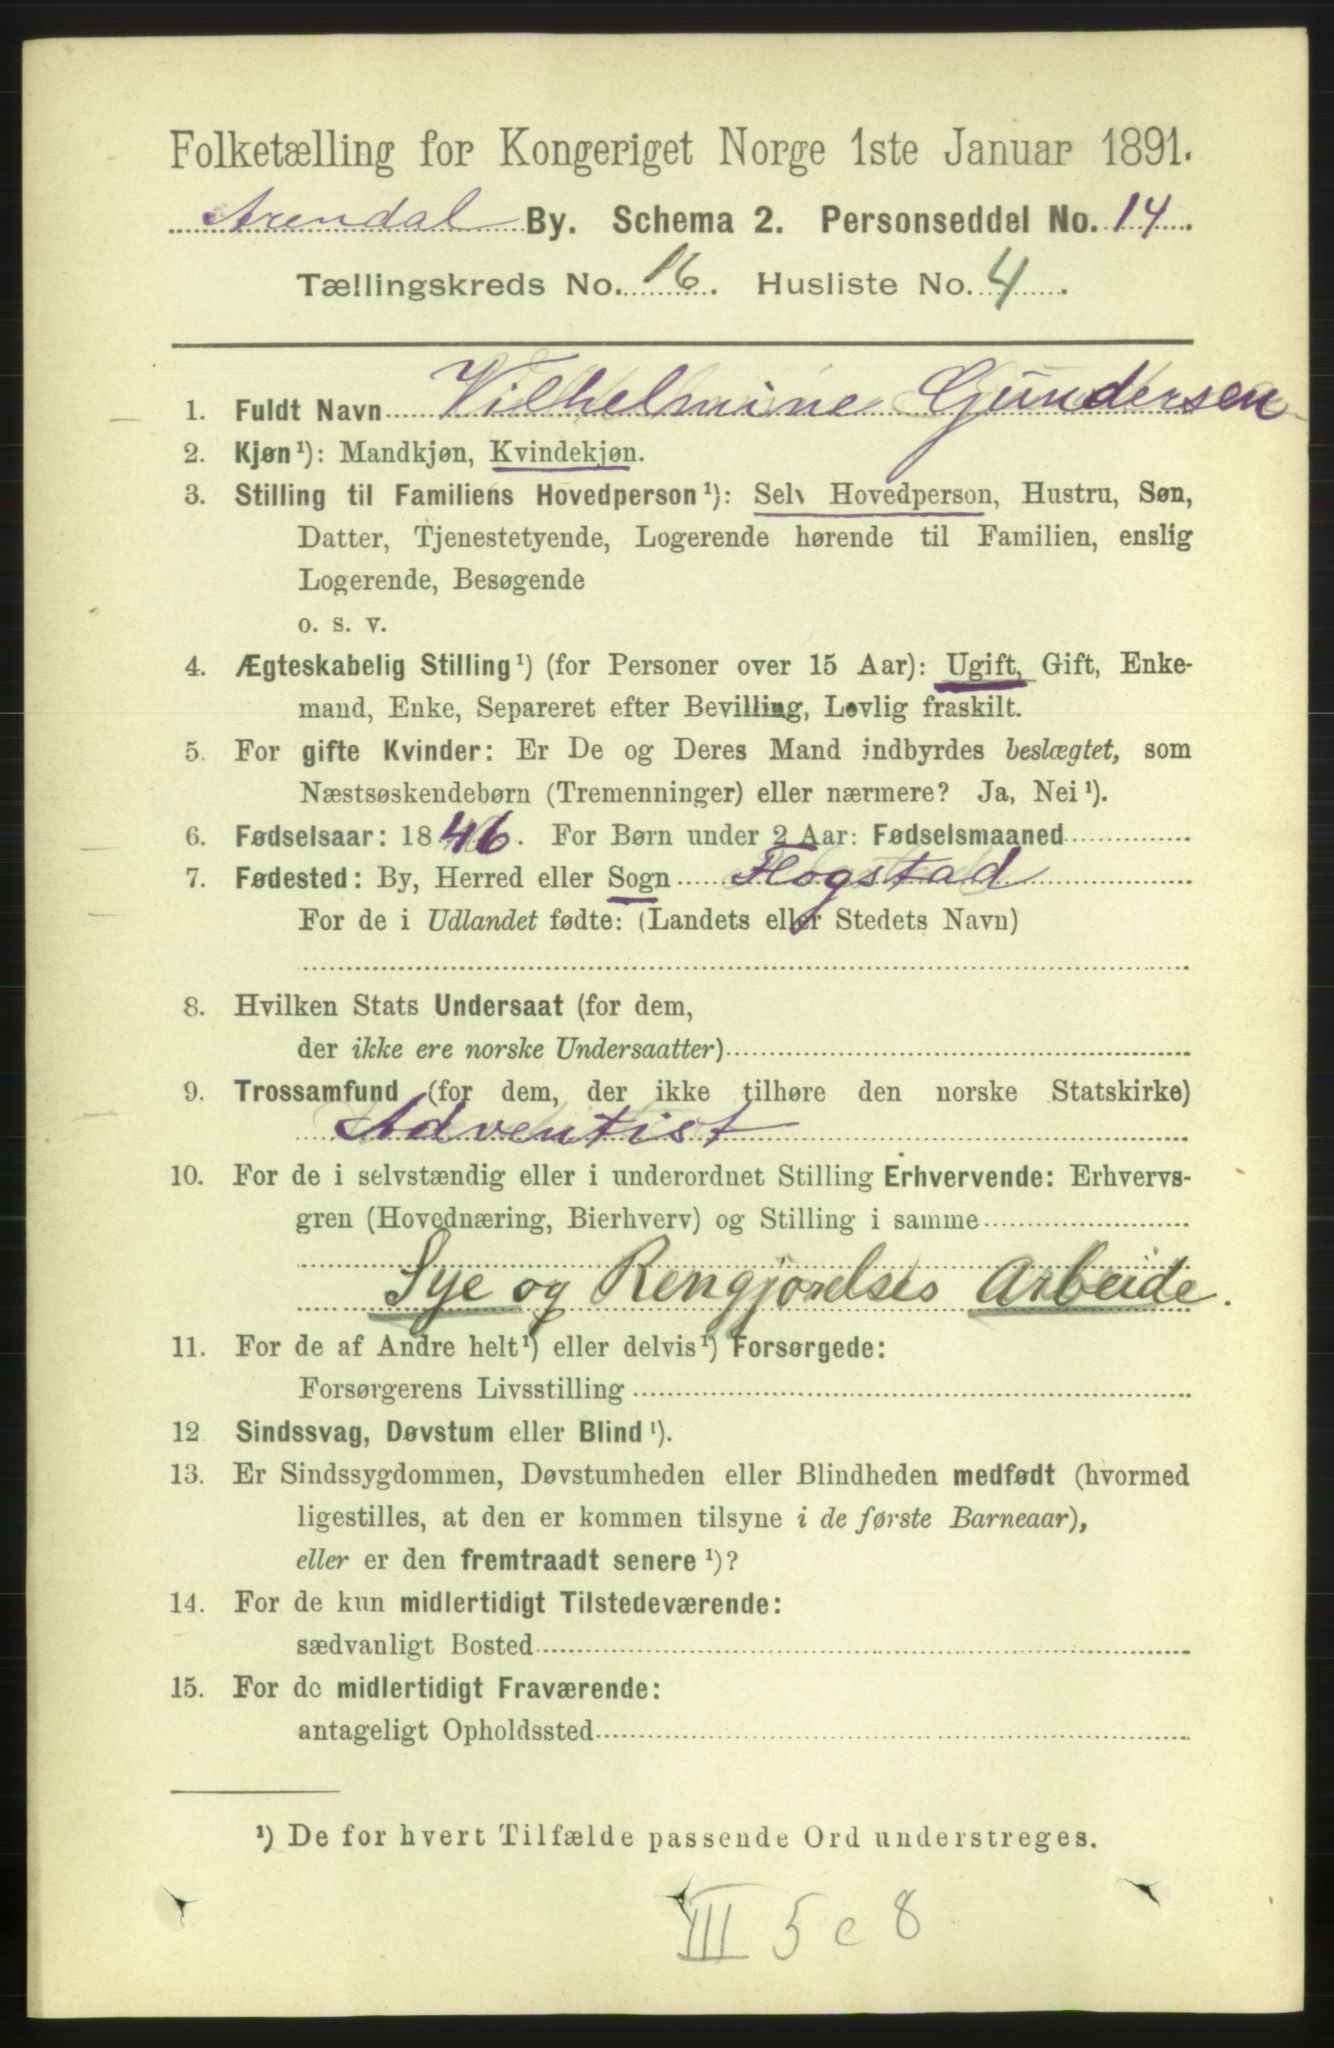 Folketælling for Kongeriget Norge 1ste Januar 1891.
Arendal By. Schema 2. Personseddel No. 14.
Tællingskreds No. 16. Husliste No. 4.
1. Fuldt Navn Vilhelmine Gundersen
2. Kjøn¹): Mandkjøn, Kvindekjøn.
3. Stilling til Familiens Hovedperson¹): Selv Hovedperson, Hustru, Søn,
Datter, Tjenestetyende, Logerende hørende til Familien, enslig
Logerende, Besøgende
o. s. v.
4. Ægteskabelig Stilling¹) (for Personer over 15 Aar): Ugift, Gift, Enke-
mand, Enke, Separeret efter Bevilling, Lovlig fraskilt.
5. For gifte Kvinder: Er De og Deres Mand indbyrdes beslægtet, som
Næstsøskendebørn (Tremenninger) eller nærmere? Ja, Nei¹).
6. Fødselsaar: 1846. For Børn under 2 Aar: Fødselsmaaned
7. Fødested: By, Herred eller Sogn Flogstad
For de i Udlandet fødte: (Landets eller Stedets Navn)
8. Hvilken Stats Undersaat (for dem,
der ikke ere norske Undersaatter)
9. Trossamfund (for dem, der ikke tilhøre den norske Statskirke)
Adventist
10. For de i selvstændig eller i underordnet Stilling Erhvervende: Erhvervs-
gren (Hovednæring, Bierhverv) og Stilling i samme
Sye og Rengjørelses Arbeide.
11. For de af Andre helt¹) eller delvis¹) Forsørgede:
Forsørgerens Livsstilling
12. Sindssvag, Døvstum eller Blind¹).
13. Er Sindssygdommen, Døvstumheden eller Blindheden medfødt (hvormed
ligestilles, at den er kommen tilsyne i de første Barneaar),
eller er den fremtraadt senere¹)?
14. For de kun midlertidigt Tilstedeværende:
sædvanligt Bosted
15. For de midlertidigt Fraværende:
antageligt Opholdssted
¹) De for hvert Tilfælde passende Ord understreges.
III 5 c 8